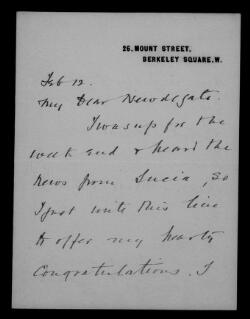 25, MOUNT STREET,
BERKELEY SQUARE, W.
Feb 12.
My Dear Newdegate.
I was up for the
week end & heard the
news from Lucia, so
I just write this line
to offer my hearty
Congratulations. I